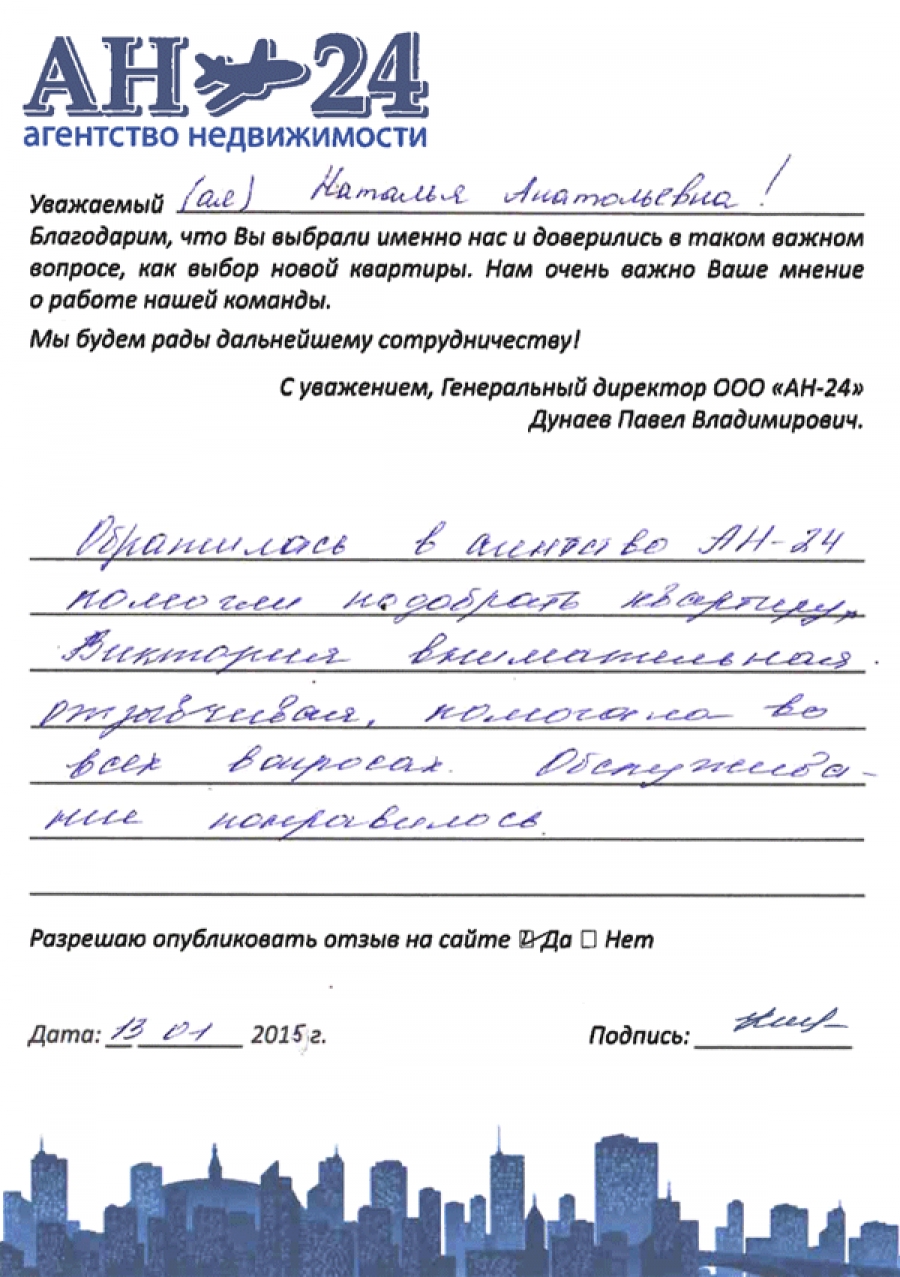 АН 24
агентство недвижимости
Уважаемый (ая) Наталья Анатольевна!
Благодарим, что Вы выбрали именно нас и доверились в таком важном
вопросе, как выбор новой квартиры. Нам очень важно Ваше мнение
о работе нашей команды.
Мы будем рады дальнейшему сотрудничеству!
С уважением, Генеральный директор ООО «АН-24»
Дунаев Павел Владимирович.
Обратилась в агентство АН-24
помогли подобрать квартиру,
Виктория внимательная
отзывчивая, помогала во
всех вопросах. Обслужива-
ние понравилось
Разрешаю опубликовать отзыв на сайте Да Нет
Дата: 13 01 2015г. Подпись: